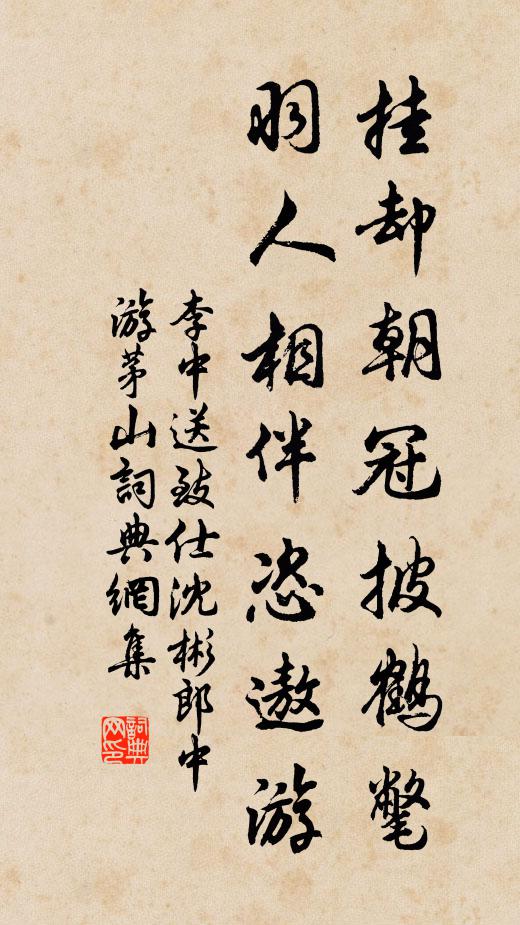 挂却朝冠披鶴氅
羽人相伴恣遨游
李中送致仕沈彬郎中
游茅山詞典網集
詞典网印